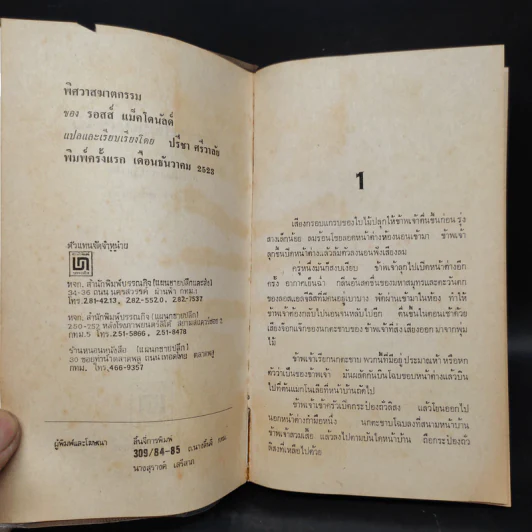 พิศวาสฆาตกรรม
ของ รอสส์ แม็คโดนัลด์
แปลและเรียบเรียงโดย ปรีชา ศรีวาลัย
พิมพ์ครั้งแรก เดือนธันวาคม 2523
ตัวแทนจัดจำหน่าย
หจก. สำนักพิมพ์บรรณกิจ (แผนกขายปลีกและส่ง)
34-36 ถนน นครสวรรค์ ผ่านฟ้า กทม.
โทร. 281-4213, 282-5520, 282-7537
หจก. สำนักพิมพ์บรรณกิจ
กทม.5 โทร. 251-5866, 251-8478
ร้านหนอนหนังสือ (แผนกขายปลีก)
กทม. โทร. 466-9357
ผู้พิมพ์และโฆษณา
309/84-85
1
เสียงกรอบแกรบของใบไม้ปลุกให้ข้าพเจ้าตื่นขึ้นก่อน รุ่ง
สางเล็กน้อย ลมร้อนโชยลอดหน้าต่างห้องนอนเข้ามา ข้าพเจ้า
ลุกขึ้นปิดหน้าต่างแล้วล้มตัวลงนอนฟังเสียงลม
ครู่หนึ่งมันก็สงบเงียบ ข้าพเจ้าลุกไปเปิดหน้าต่างอีก
ครั้ง อากาศเย็นฉ่ำ กลิ่นอายสดชื่นของมหาสมุทรและ
ของลอสแองเจลิสที่ พัดผ่านเข้ามาในห้อง ทำให้
ข้าพเจ้าต้องกลับไปนอนจนหลับไปอีก ตื่นขึ้นในตอนเช้าด้วย
เสียงร้องแจ้กของนกตะขาบของ ข้าพเจ้าที่ส่งเสียงออกมาจากพุ่ม
ไม้
ข้าพเจ้าเรียกนกตะขาบ พวกนี้ที่มีอยู่ ประมาณห้า หรือหก
ตัวว่าเป็นของข้าพเจ้า มันผลัดกันบินโฉบขอบหน้าต่างแล้วบิน
ไปที่ต้นแมกโนเลียที่หน้าบ้านถัดไป
ข้าพเจ้าเข้าครัวเปิดกระป๋องถั่วลิสง แล้วโยนออกไป
นอกหน้าต่างกำมือหนึ่ง นกตะขาบโฉบลงที่สนามหน้าบ้าน
ข้าพเจ้าสวมเสื้อ แล้วลงไปตามบันไดหน้าบ้าน ถือกระป๋องถั่ว
ลิสงที่เหลือไปด้วย